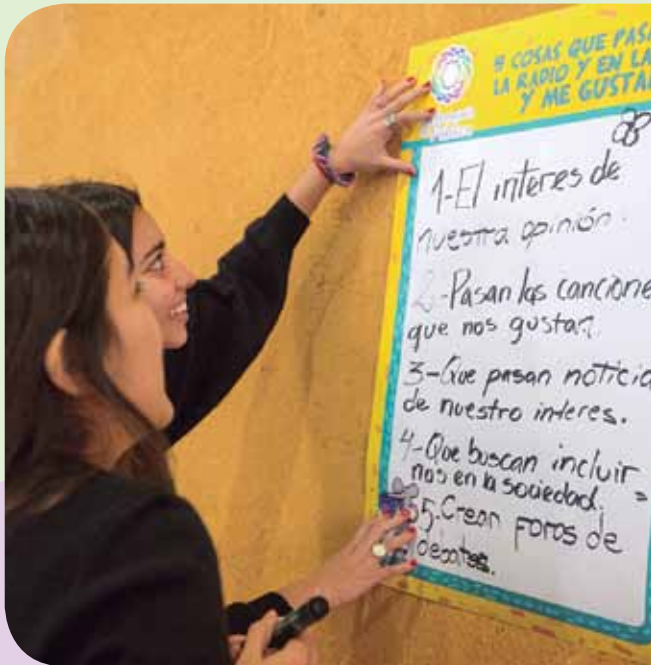 5 COSAS QUE PASA
LA RADIO Y EN LA
Y ME GUSTA
1-El interes de
nuestra opinión.
2-Pasan las cancione
que nos gustan.
3-Que pasan noticia
de nuestro interes.
4-Que buscan incluir=
nos en la sociedad.
5-Crean foros de
debates.